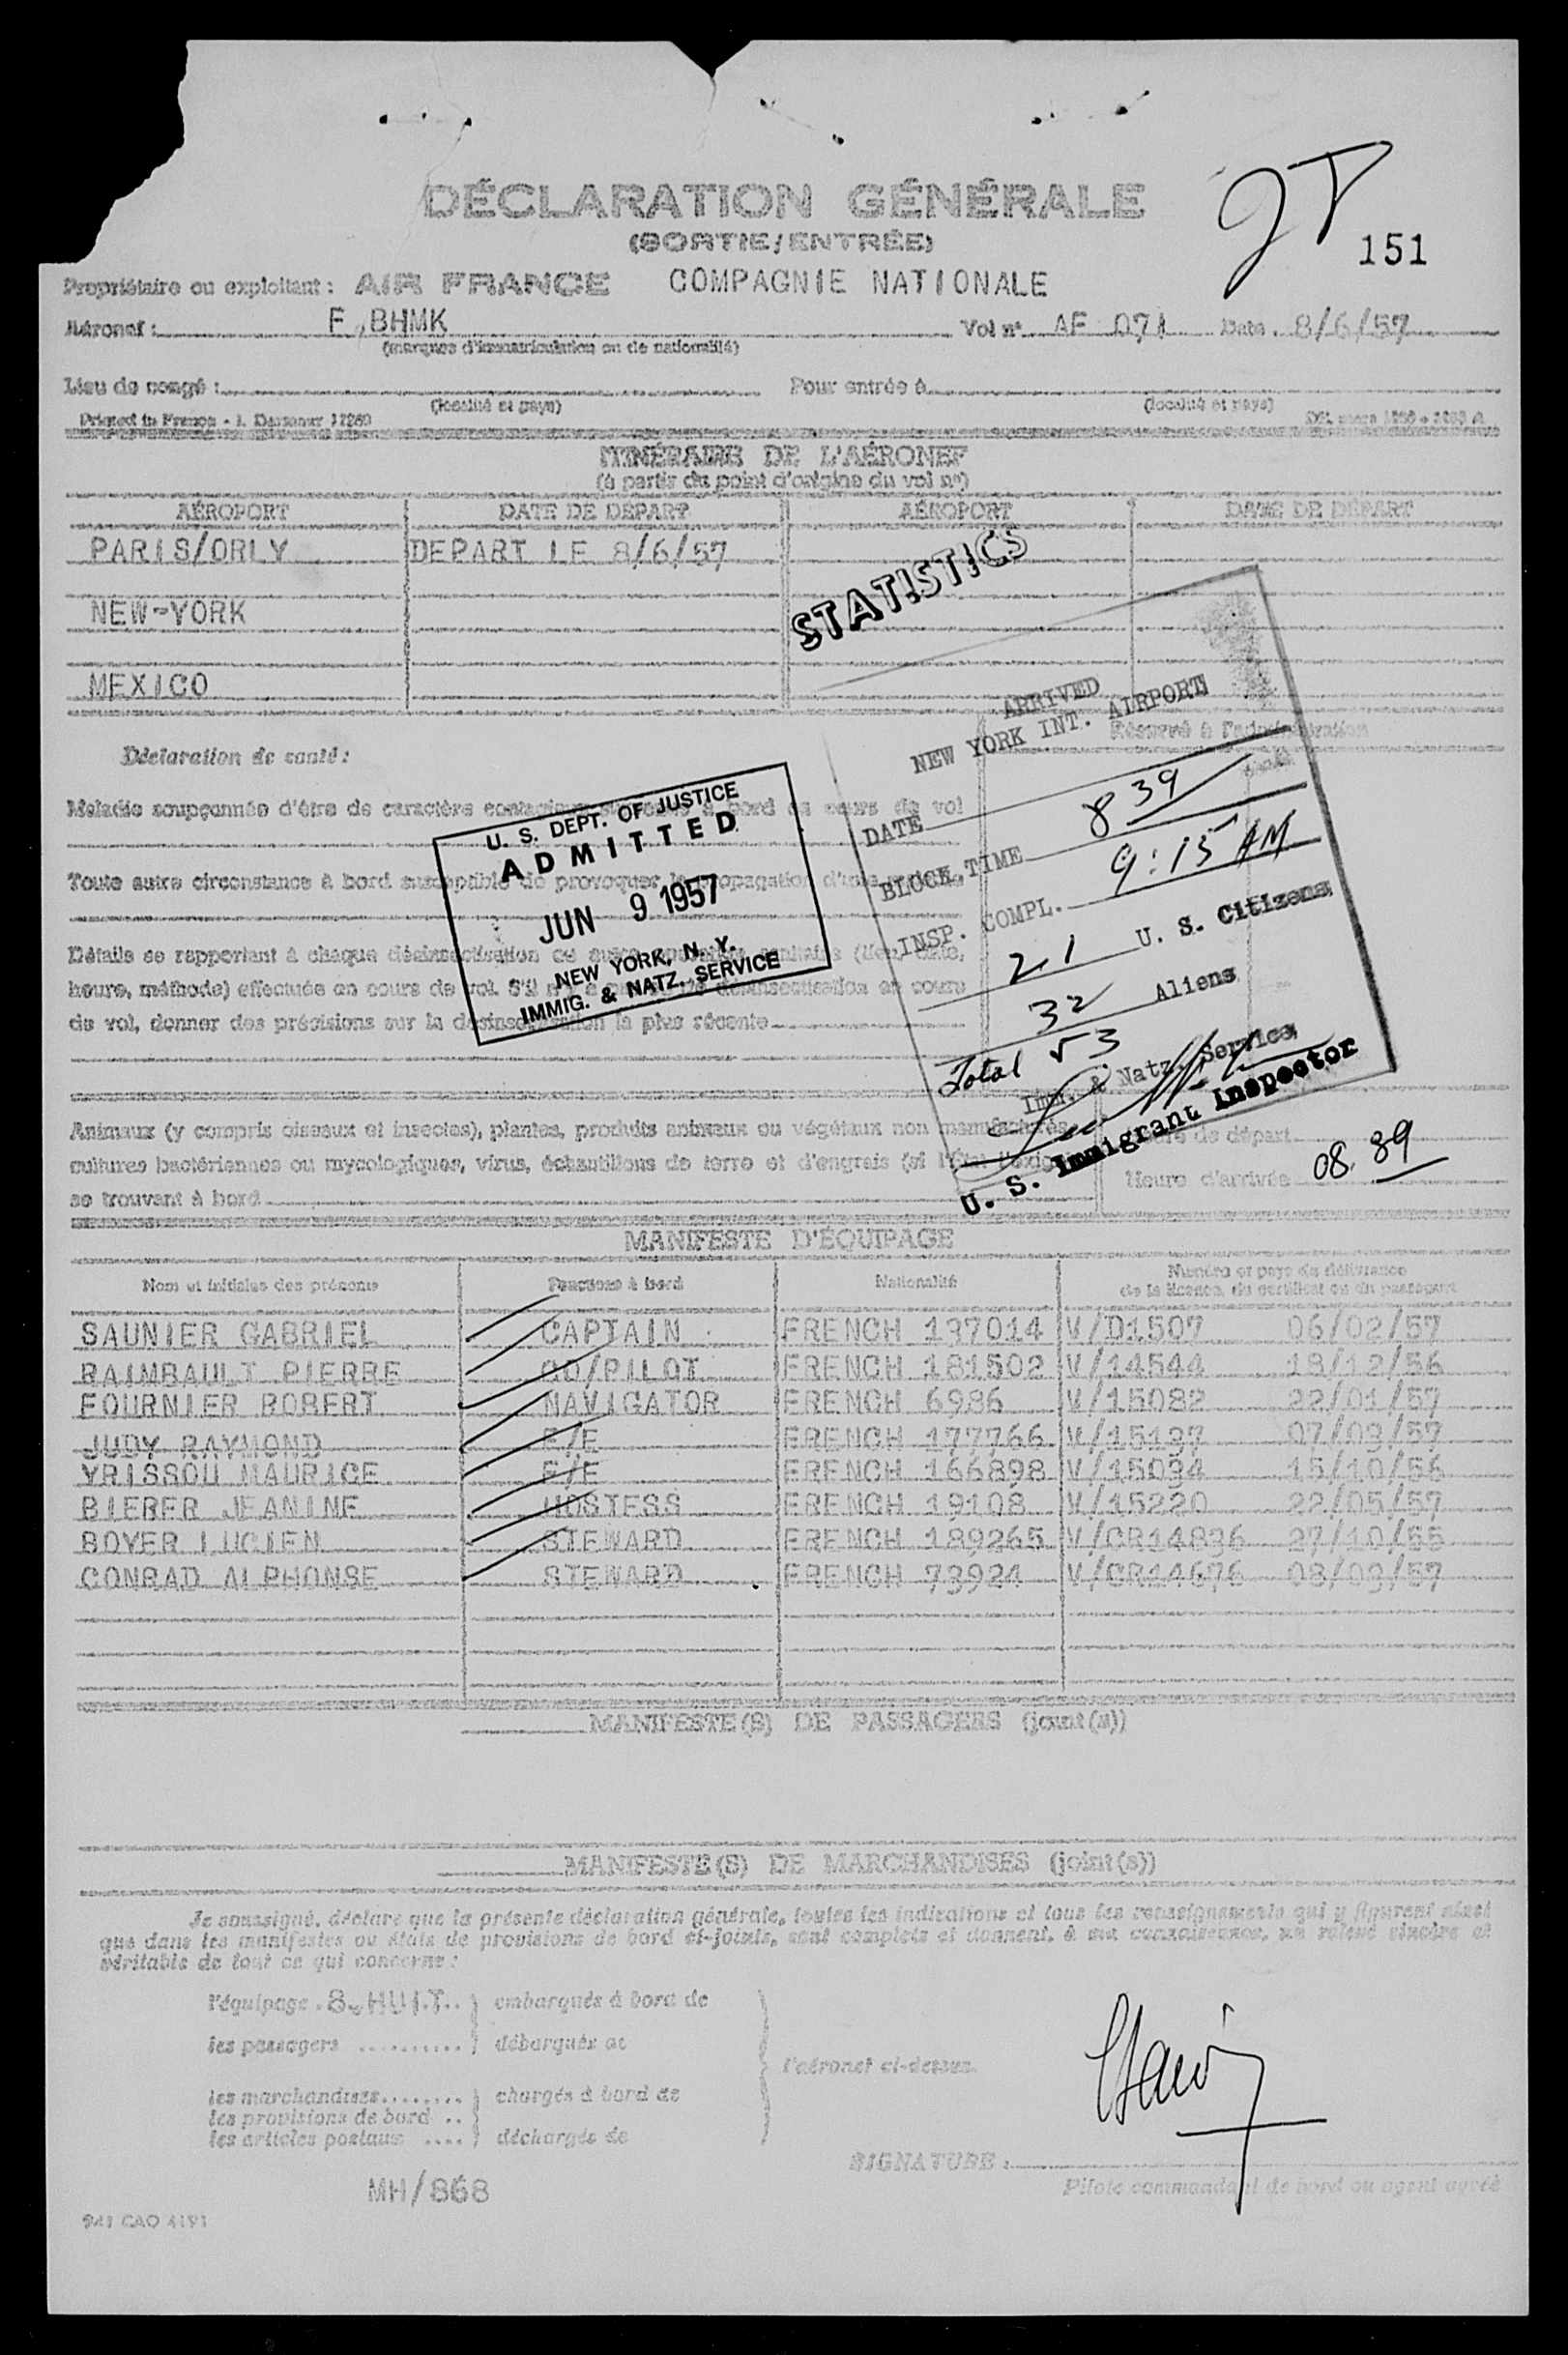 DÉCLARATION GÉNÉRALE
(SORTIE/ENTRÉE)
151
Propriétaire ou exploitant : AIR FRANCE COMPAGNIE NATIONALE
Aéronef : F,BHMK Vol n° AF 071 Date 8/6/57
(marques d'immatriculation ou de nationalité)
Lieu de congé : Pour entrée à
(localité et pays) (localité et pays)
Printed in France
ITINÉRAIRE DE L'AÉRONEF
(à partir du point d'origine du vol n°)
AÉROPORT DATE DE DÉPART AÉROPORT DATE DE DÉPART
PARIS/ORLY DEPART LE 8/6/57
STATISTICS
NEW-YORK
MEXICO
ARRIVED
NEW YORK INT. AIRPORT
DATE
BLOCK TIME 8 39
INSP. COMPL. 9:15 AM
21 U. S. Citizens
32 Aliens
Total 53
Imm. & Natz. Service
U. S. Immigrant Inspector
Réservé à l'administration
Déclaration de santé :
Maladie soupçonnée d'être de caractère à bord au cours du vol
U. S. DEPT. OF JUSTICE
ADMITTED
JUN 9 1957
NEW YORK, N. Y.
IMMIG. & NATZ. SERVICE
Toute autre circonstance à bord susceptible de provoquer la propagation
Détails se rapportant à chaque désinsectisation ou
heure, méthode) effectuée au cours du vol. S'il désinsectisation au cours
de vol, donner des précisions sur la désinsectisation la plus récente
Animaux (y compris oiseaux et insectes), plantes, produits animaux ou végétaux non manufacturés,
cultures bactériennes ou mycologiques, virus, échantillons de terre et d'engrais (si l'État l'exige)
se trouvant à bord
de départ
Heure d'arrivée 08.39
MANIFESTE D'ÉQUIPAGE
Nom et initiales des prénoms Fonctions à bord Nationalité Numéro et pays de délivrance
de la licence, du certificat ou du passeport
SAUNIER GABRIEL CAPTAIN FRENCH 137014 V/D1507 06/02/57
RAIMBAULT PIERRE CO/PILOT FRENCH 181502 V/14544 18/12/56
FOURNIER ROBERT NAVIGATOR FRENCH 6986 V/15082 22/01/57
JUDY RAYMOND F/E FRENCH 177766 V/15137 07/03/57
VRISSOU MAURICE F/E FRENCH 166898 V/15034 15/10/56
BIEBER JEANINE HOSTESS FRENCH 19108 V/15220 22/05/57
BOYER LUCIEN STEWARD FRENCH 189265 V/CR14836 27/10/55
CONRAD ALPHONSE STEWARD FRENCH 73924 V/CR14676 08/03/57
MANIFESTE(S) DE PASSAGERS (joint(s))
MANIFESTE(S) DE MARCHANDISES (joint(s))
Je soussigné, déclare que la présente déclaration générale, toutes les indications et tous les renseignements qui y figurent ainsi
que dans les manifestes ou états de provisions de bord ci-joints, sont complets et donnent, à ma connaissance, un relevé sincère et
véritable de tout ce qui concerne :
l'équipage 8. HUIT embarqués à bord de
les passagers débarqués de
l'aéronef ci-dessus
les marchandises chargés à bord de
les provisions de bord
les articles postaux déchargés de
SIGNATURE :
Pilote commandant de bord ou agent agréé
MH/868
941 CAO 4191